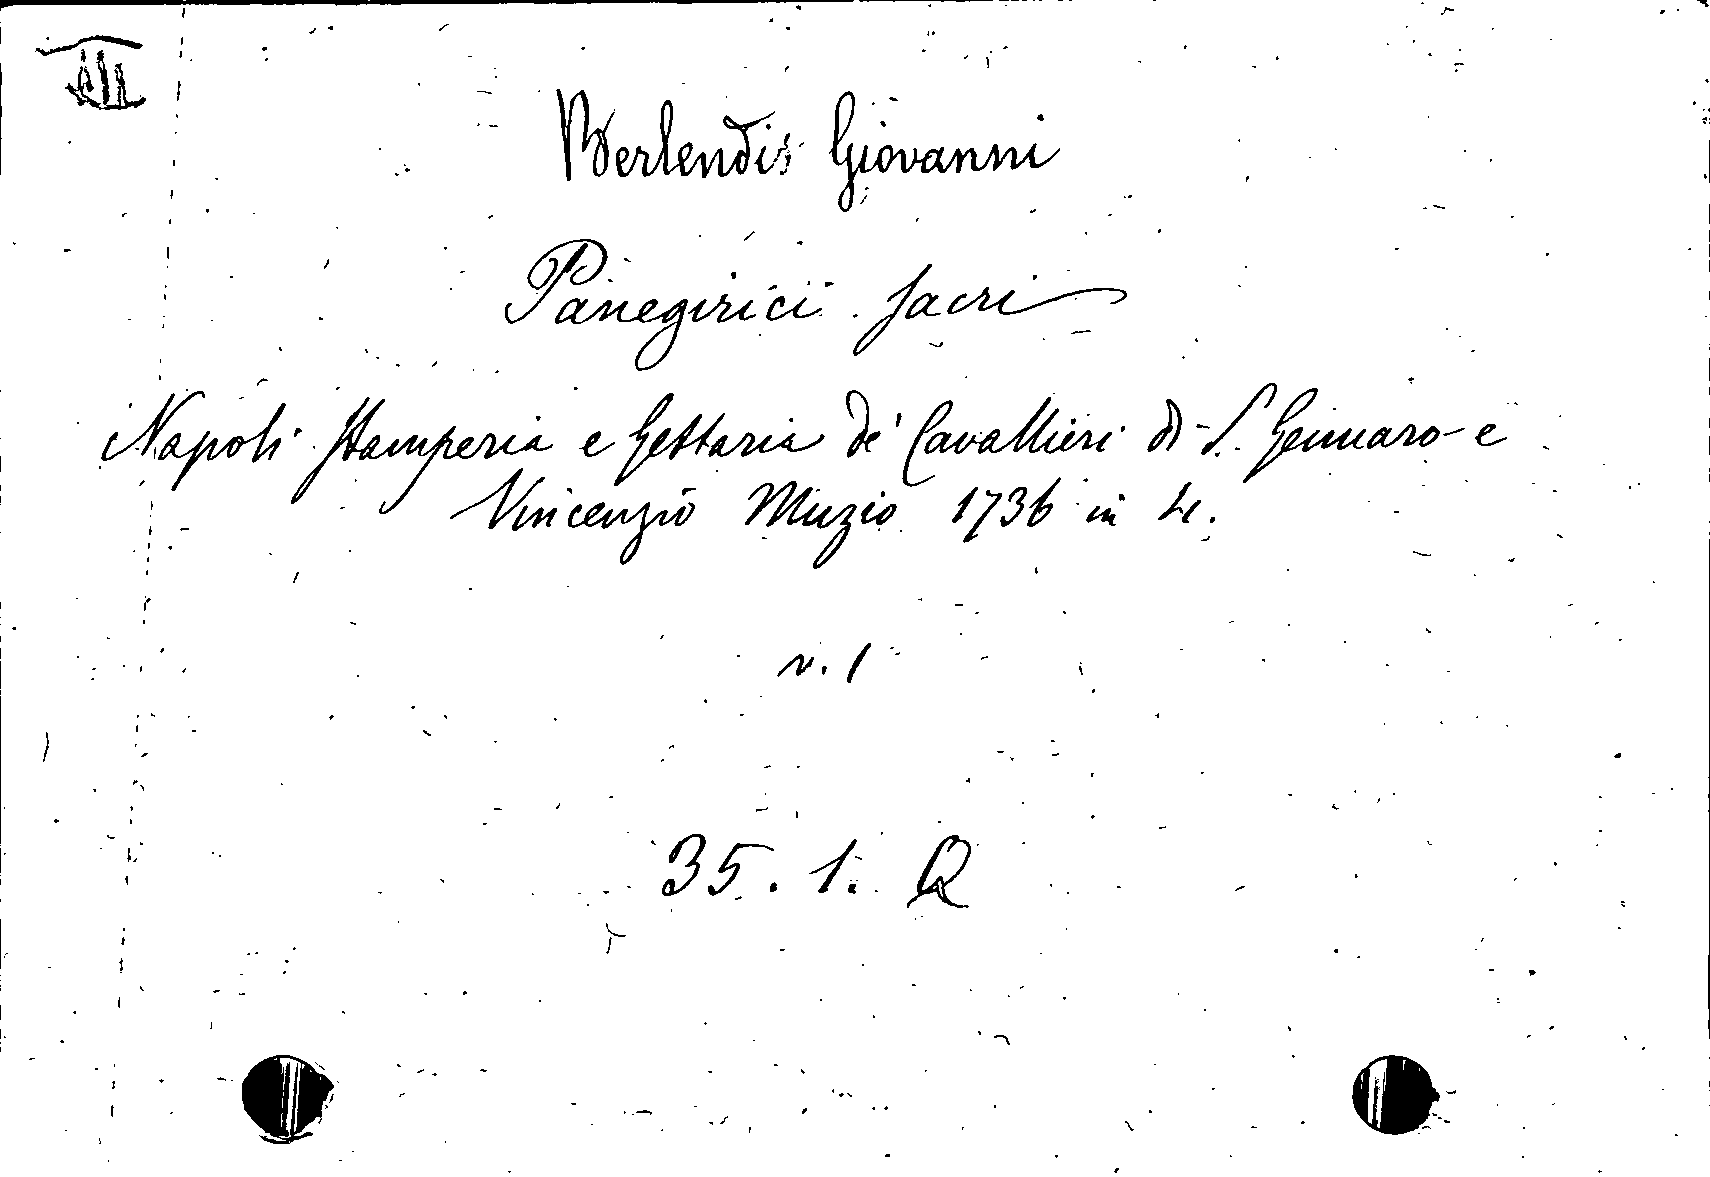 III
Berlendis Giovanni
Panegirici sacri
Napoli Stamperia e Gettaria de' Cavallieri di S. Gennaro e
Vincenzio Muzio 1736 in 4.
v. 1
35. 1. Q